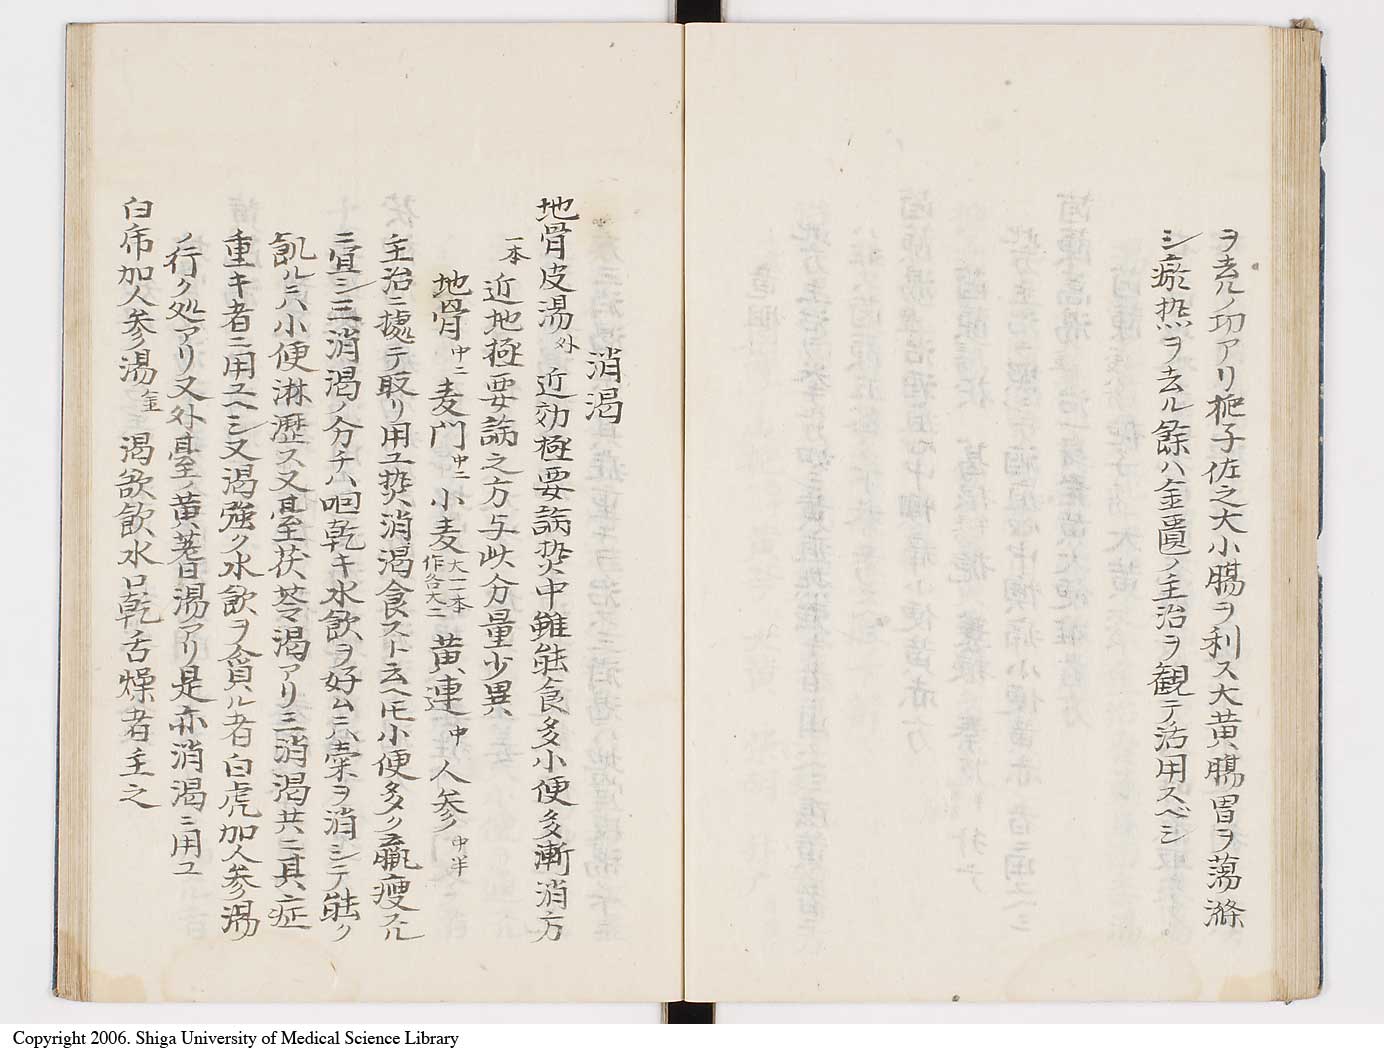 ヲ去ルノ功アリ梔子佐之大小腸ヲ利ス大黄腸胃ヲ蕩滌
シ瘀熱ヲ去ル餘ハ金匱ノ主治ヲ観テ活用スベシ
消渇
地骨皮湯 外 近効極要論熒中雖能食多小便多漸消方
一本近地極要論之方与此分量少異
地骨 中二 麦門 中二 小麦 大一一本作各大二 黄連 中 人参 中半
主治ニ據テ取リ用ユ熒消渇食スト云ヘ𪜈小便多ク羸瘦スル
ニ宜シ三消渇ノ分チハ咽乾キ水飲ヲ好ム三ハ棠ヲ消シテ能ク
飢ル三ハ小便淋瀝ス又臺茯苓湯アリ三消渇共ニ其症
重キ者ニ用ユヘシ又渇強ク水飲ヲ貪ル者白虎加人参湯
ノ行ク処アリ又外臺ノ黄耆湯アリ是亦消渇ニ用ユ
白虎加人参湯 金 渇欲飲水口乾舌燥者主之
Copyright 2006. Shiga University of Medical Science Library